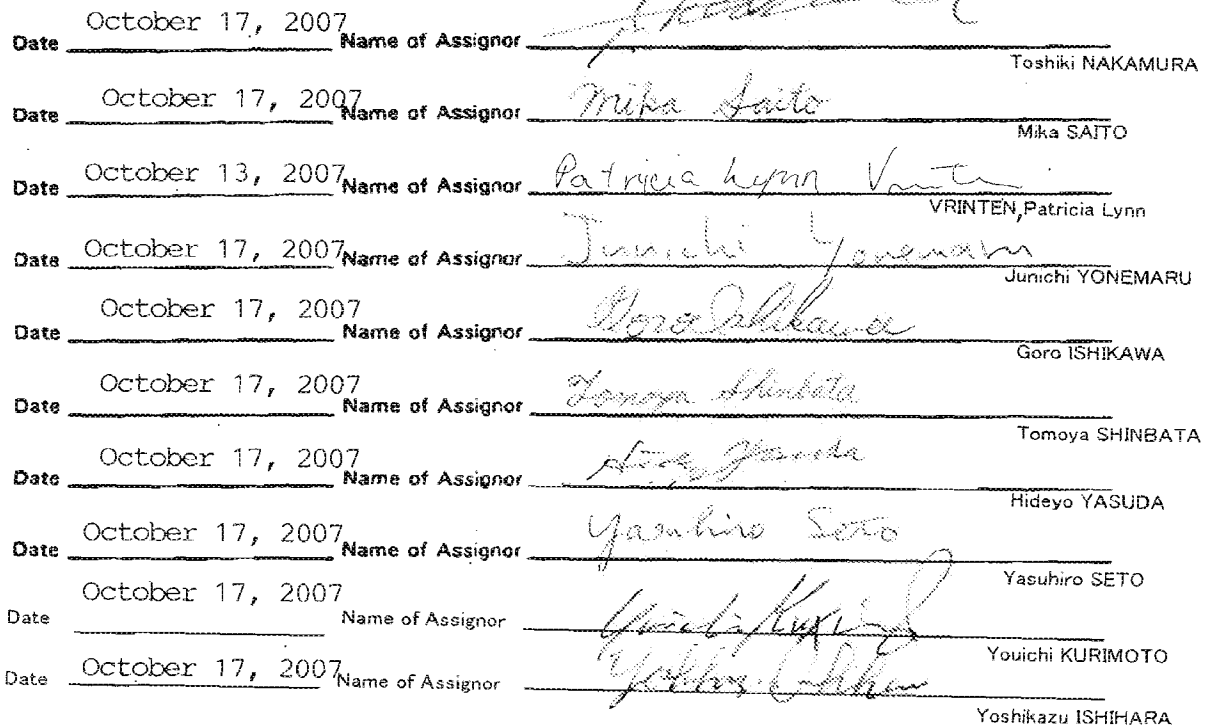 Date October 17, 2007 Name of Assignor
Toshiki NAKAMURA
Date October 17, 2007 Name of Assignor Mika Saito
Mika SAITO
Date October 13, 2007 Name of Assignor Patricia Lynn
VRINTEN, Patricia Lynn
Date October 17, 2007 Name of Assignor Junichi Yonemaru
Junichi YONEMARU
Date October 17, 2007 Name of Assignor Goro Ishikawa
Goro ISHIKAWA
Date October 17, 2007 Name of Assignor Tomoya Shinbata
Tomoya SHINBATA
Date October 17, 2007 Name of Assignor
Hideyo YASUDA
Date October 17, 2007 Name of Assignor Yasuhiro Seto
Yasuhiro SETO
Date October 17, 2007 Name of Assignor
Youichi KURIMOTO
Date October 17, 2007 Name of Assignor
Yoshikazu ISHIHARA